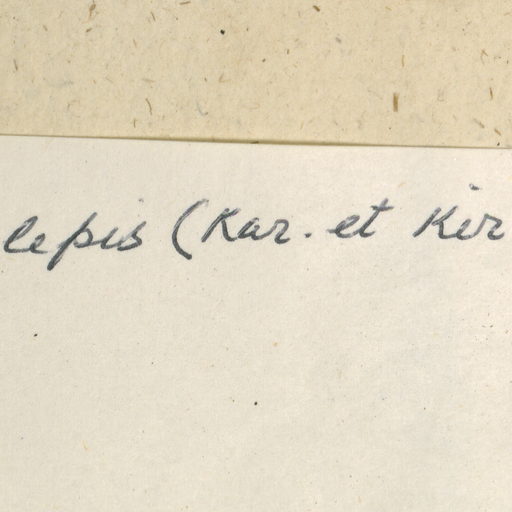 lepis (Kar. et Kir